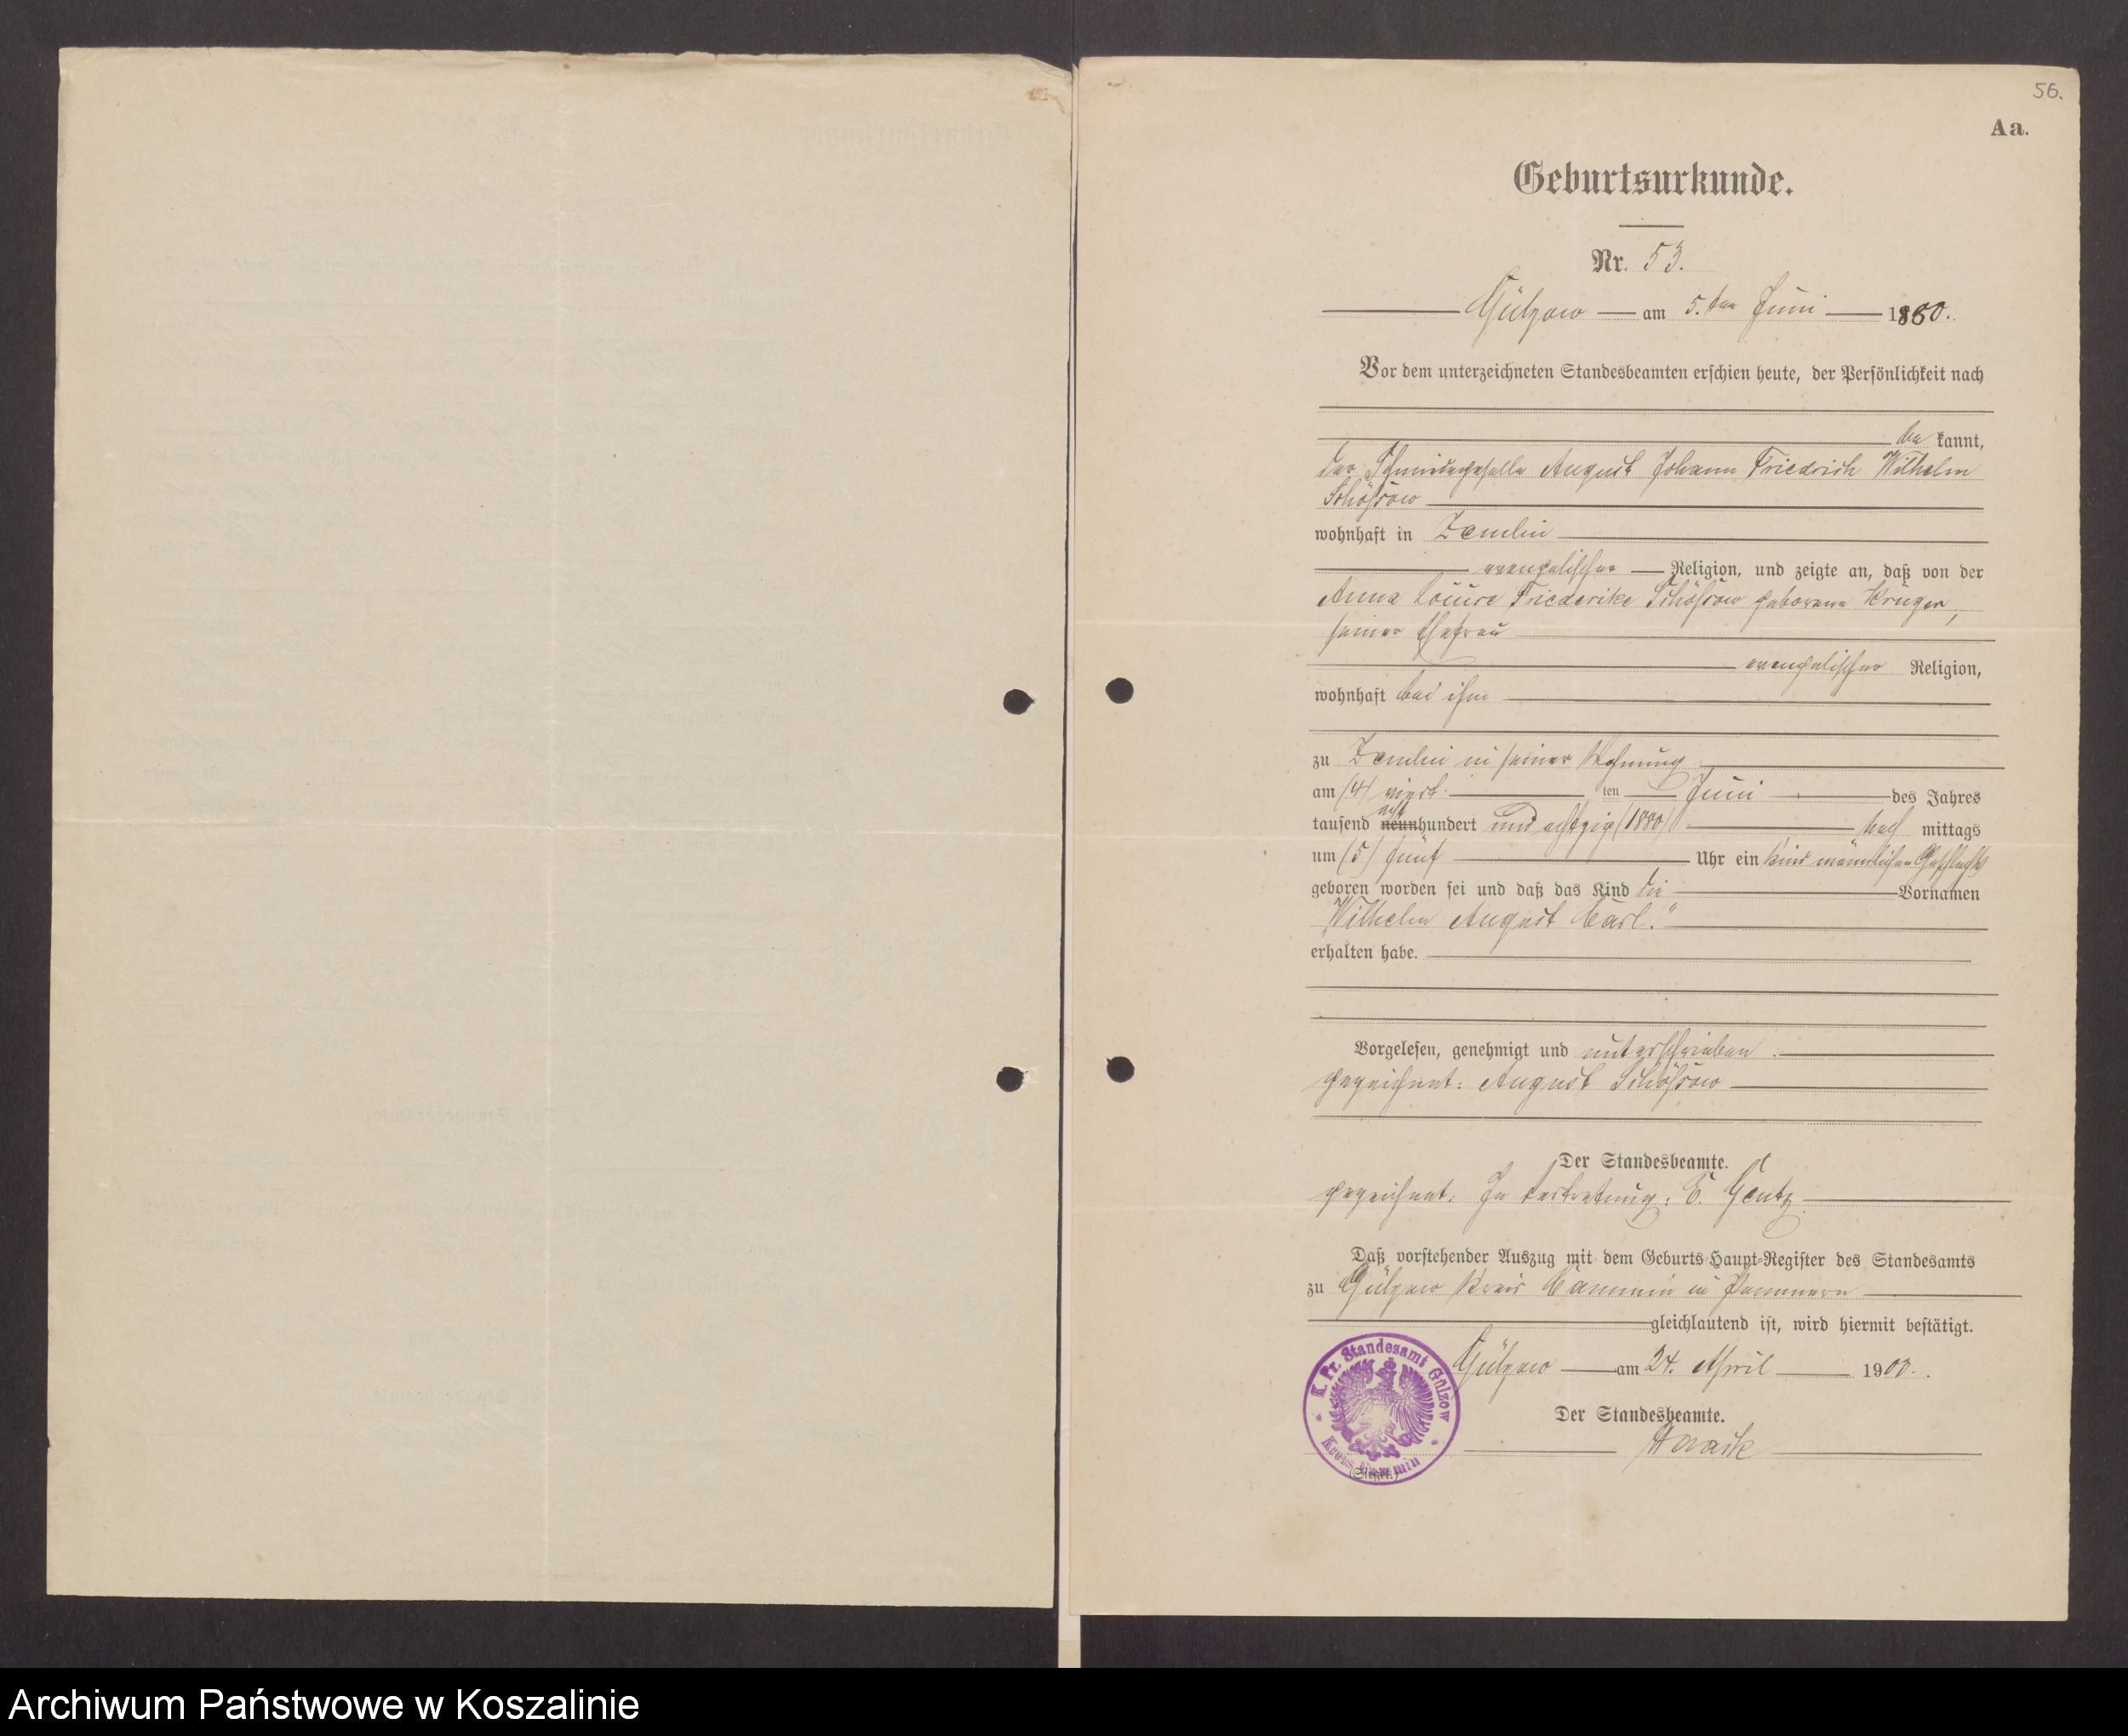 56.
Aa.
Geburtsurkunde.
Nr. 53.
Gülzow am 5.ten Juni 1880.
Vor dem unterzeichneten Standesbeamten erschien heute, der Persönlichkeit nach
be kannt,
der Schmiedegeselle August Johann Friedrich Wilhelm
Schössow
wohnhaft in Zemlin
evangelischer Religion, und zeigte an, daß von der
Anna Louise Friederike Schössow geborene Krüger,
seiner Ehefrau
evangelischer Religion,
wohnhaft bei ihm
zu Zemlin in seiner Wohnung
am (4) viert ten Juni des Jahres
tausend acht neunhundert und achtzig (1880) nach mittags
um (5) fünf Uhr ein Kind männlichen Geschlechts
geboren worden sei und daß das Kind die Vornamen
„Wilhelm August Carl."
erhalten habe.
Vorgelesen, genehmigt und unterschrieben.
gezeichnet: August Schössow
Der Standesbeamte.
gezeichnet: In Vertretung: E. Gentz
Daß vorstehender Auszug mit dem Geburts-Haupt-Register des Standesamts
zu Gülzow Kreis Cammin in Pommern
gleichlautend ist, wird hiermit bestätigt.
K. Pr. Standesamt Gülzow
Kreis Cammin
(Siegel.)
Gülzow am 24. April 1900.
Der Standesbeamte.
Archiwum Państwowe w Koszalinie